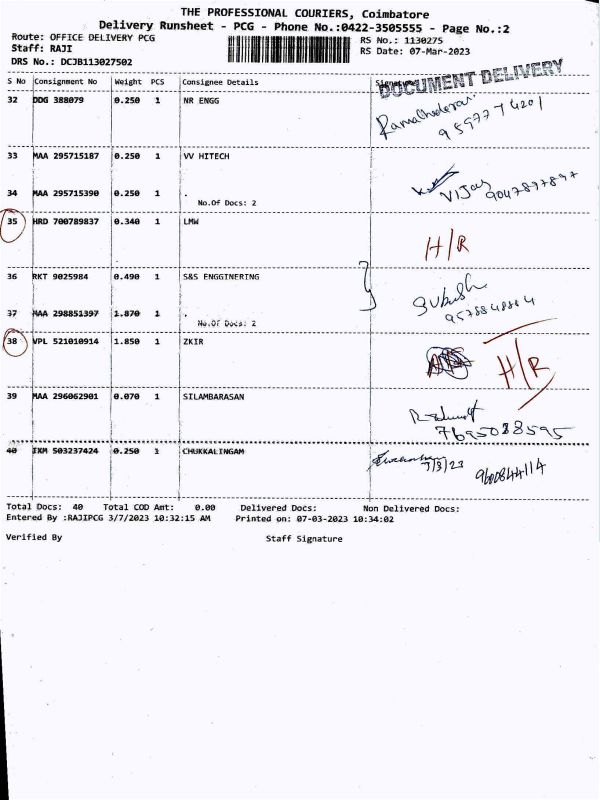 THE PROFESSIONAL COURIERS, Coimbatore
Delivery Runsheet - PCG - Phone No.:0422-3505555 - Page No.:2
Route: OFFICE DELIVERY PCG
Staff: RAJI
DRS No.: DCJB113027502
RS No.: 1130275
RS Date: 07-Mar-2023
S No Consignment No Weight PCS Consignee Details Signature
DOCUMENT DELIVERY
32 DDG 388079 0.250 1 NR ENGG
9597774201
33 MAA 295715187 0.250 1 VV HITECH
34 MAA 295715390 0.250 1 .
No.Of Docs: 2
VIJay
9047897897
35 HRD 700789837 0.340 1 LMW
H/R
36 RKT 9025984 0.490 1 S&S ENGGINERING
37 MAA 298851397 1.870 1 .
No.Of Docs: 2
38 VPL 521010914 1.850 1 ZKIR
H/R
39 MAA 296062901 0.070 1 SILAMBARASAN
7695038595
40 IXM 503237424 0.250 1 CHUKKALINGAM
7/3/23
9600844114
Total Docs: 40 Total COD Amt: 0.00 Delivered Docs: Non Delivered Docs:
Entered By :RAJIPCG 3/7/2023 10:32:15 AM Printed on: 07-03-2023 10:34:02
Verified By Staff Signature